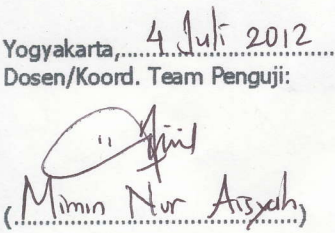 Yogyakarta, 4 Juli 2012
Dosen/Koord. Team Penguji:
(Mimin Nur Aisyah)